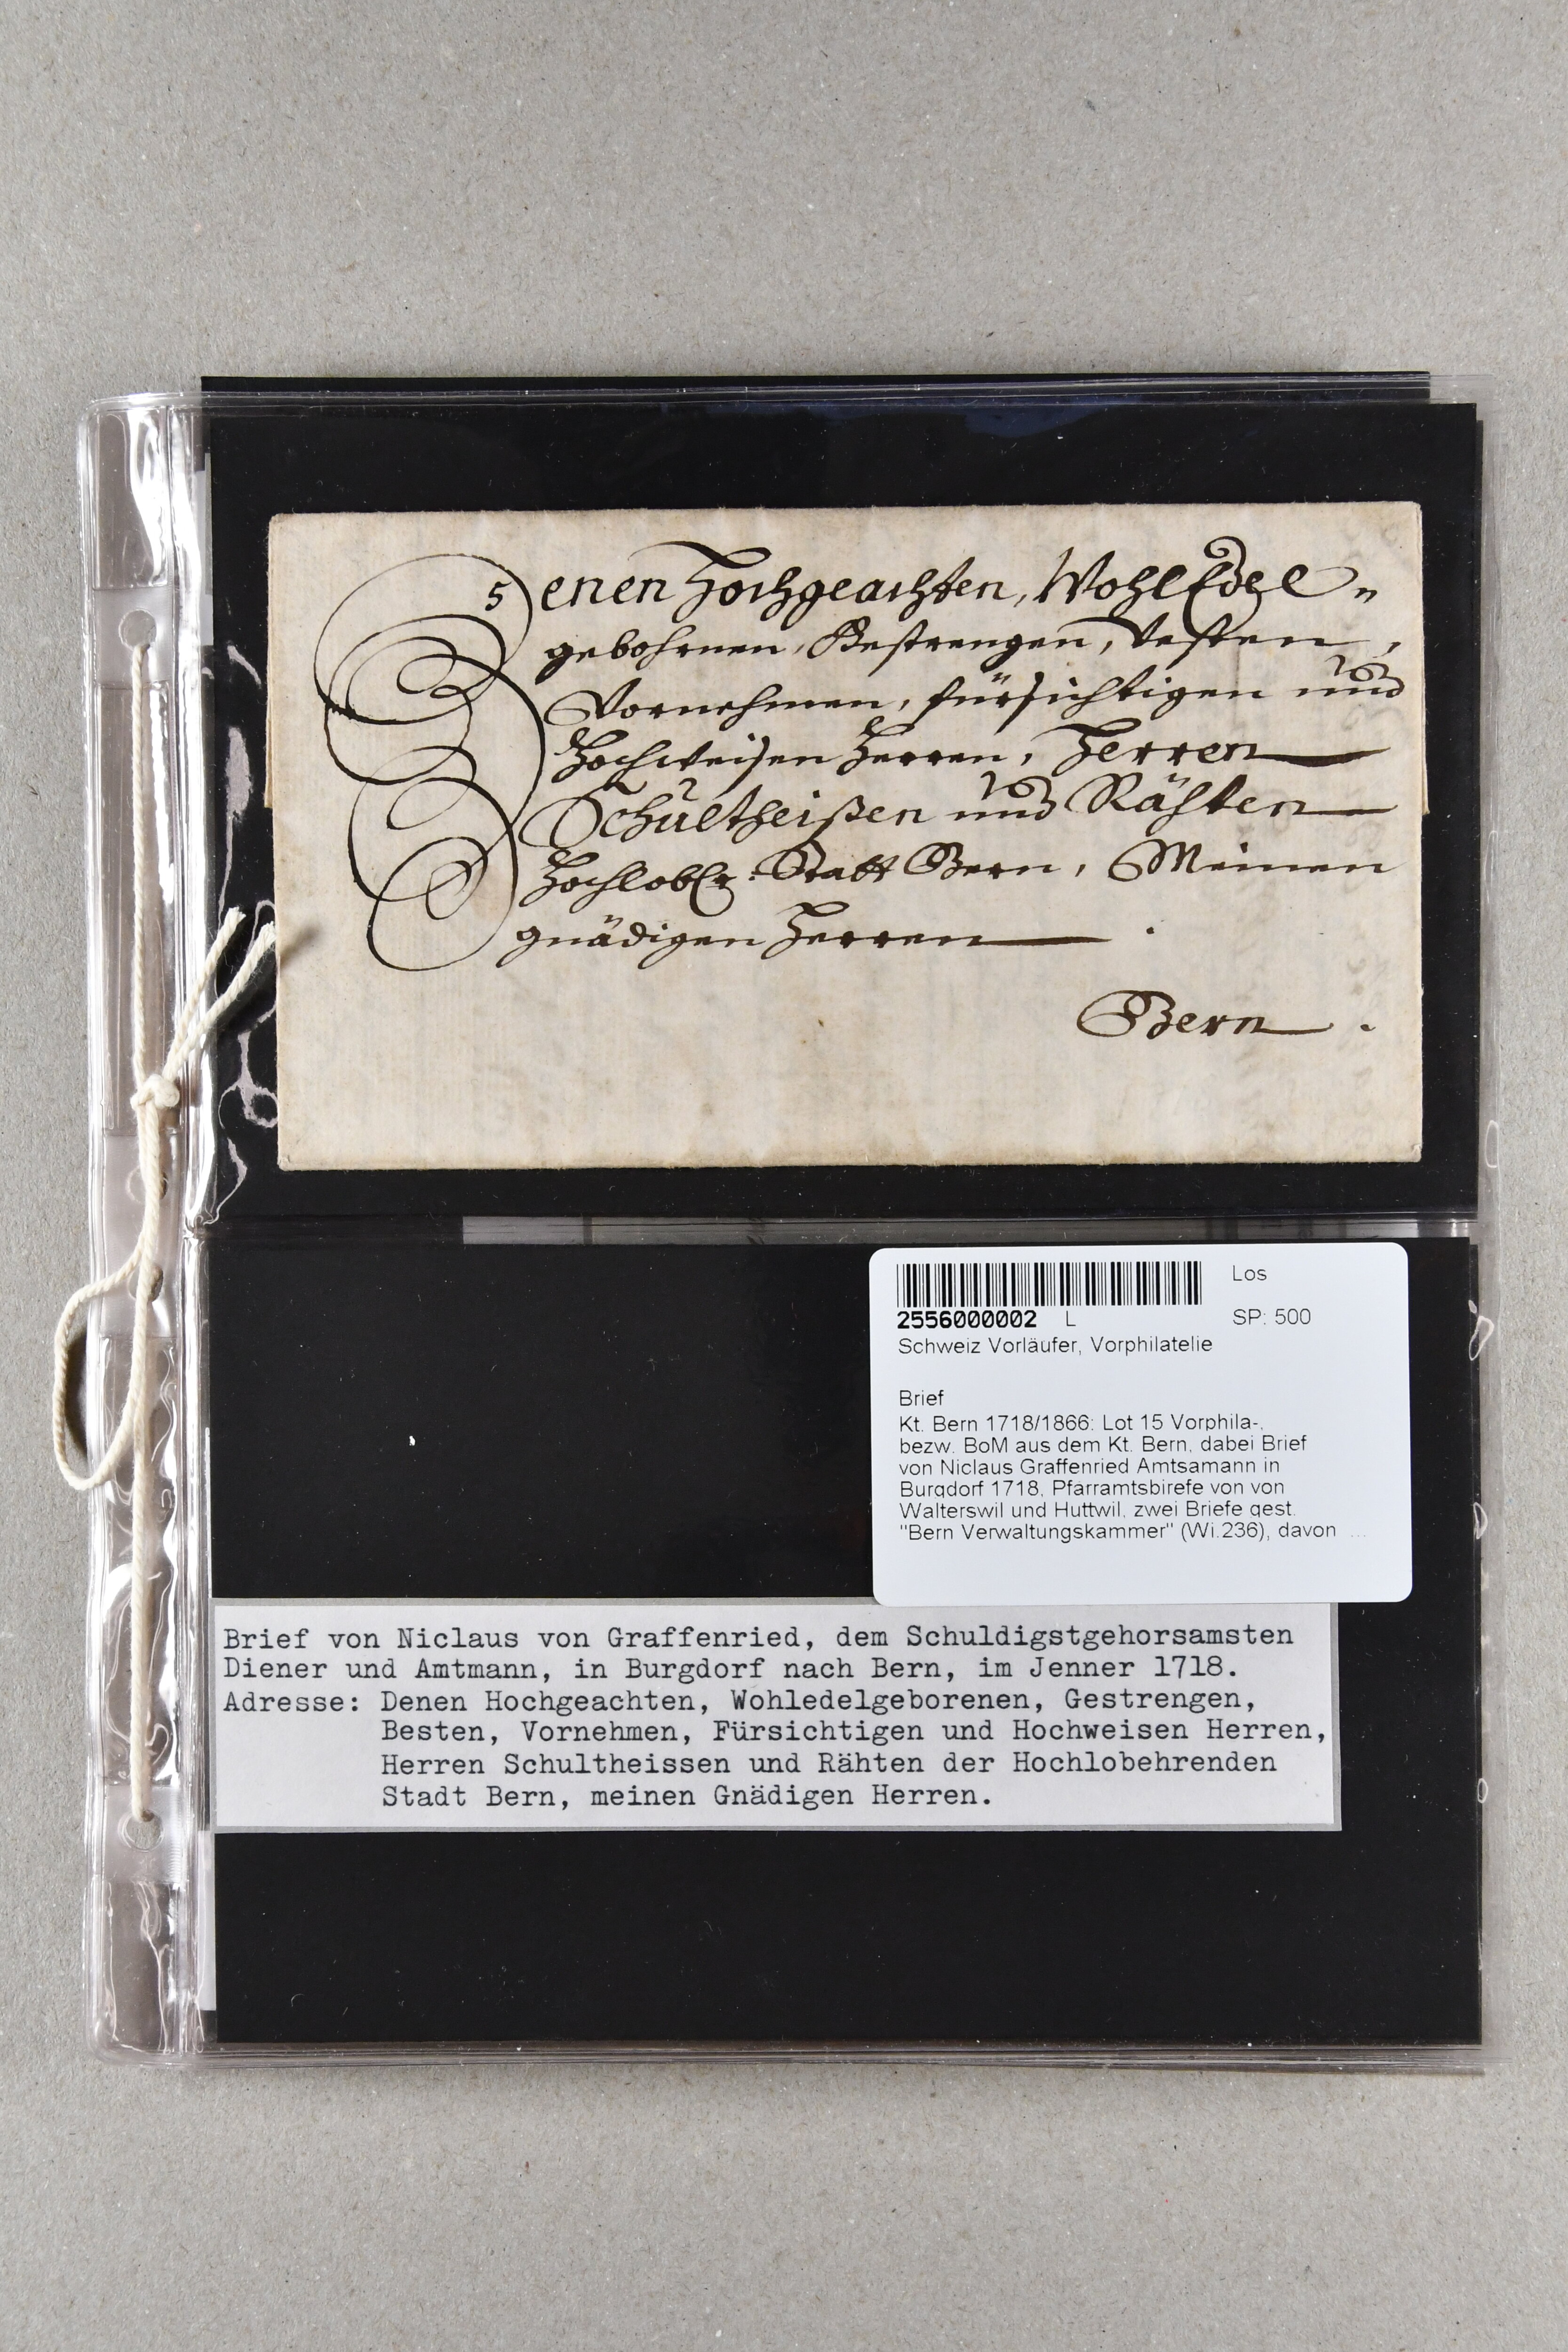 Denen Hochgeachten, WohlEdel„
gebohrnen, Gestrengen, Vesten,
Vornehmen, fürsichtigen und
Hochweisen Herren, Herren
Schultheißen und Rähten
Hochlobl.r Statt Bern, Meinen
gnädigen Herren .
Bern .
Los
2556000002 L SP: 500
Schweiz Vorläufer, Vorphilatelie
Brief
Kt. Bern 1718/1866: Lot 15 Vorphila-,
bezw. BoM aus dem Kt. Bern, dabei Brief
von Niclaus Graffenried Amtsamann in
Burgdorf 1718, Pfarramtsbirefe von von
Walterswil und Huttwil, zwei Briefe gest.
"Bern Verwaltungskammer" (Wi.236), davon ...
Brief von Niclaus von Graffenried, dem Schuldigstgehorsamsten
Diener und Amtmann, in Burgdorf nach Bern, im Jenner 1718.
Adresse: Denen Hochgeachten, Wohledelgeborenen, Gestrengen,
Besten, Vornehmen, Fürsichtigen und Hochweisen Herren,
Herren Schultheissen und Rähten der Hochlobehrenden
Stadt Bern, meinen Gnädigen Herren.